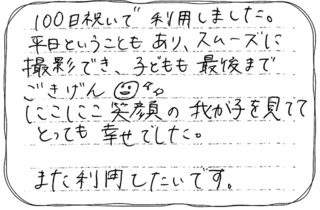 100日祝いで利用しました。
平日ということもあり、スムーズに
撮影でき、子どもも最後まで
ごきげん
にこにこ笑顔の我が子を見てて
とっても幸せでした。
また利用したいです。